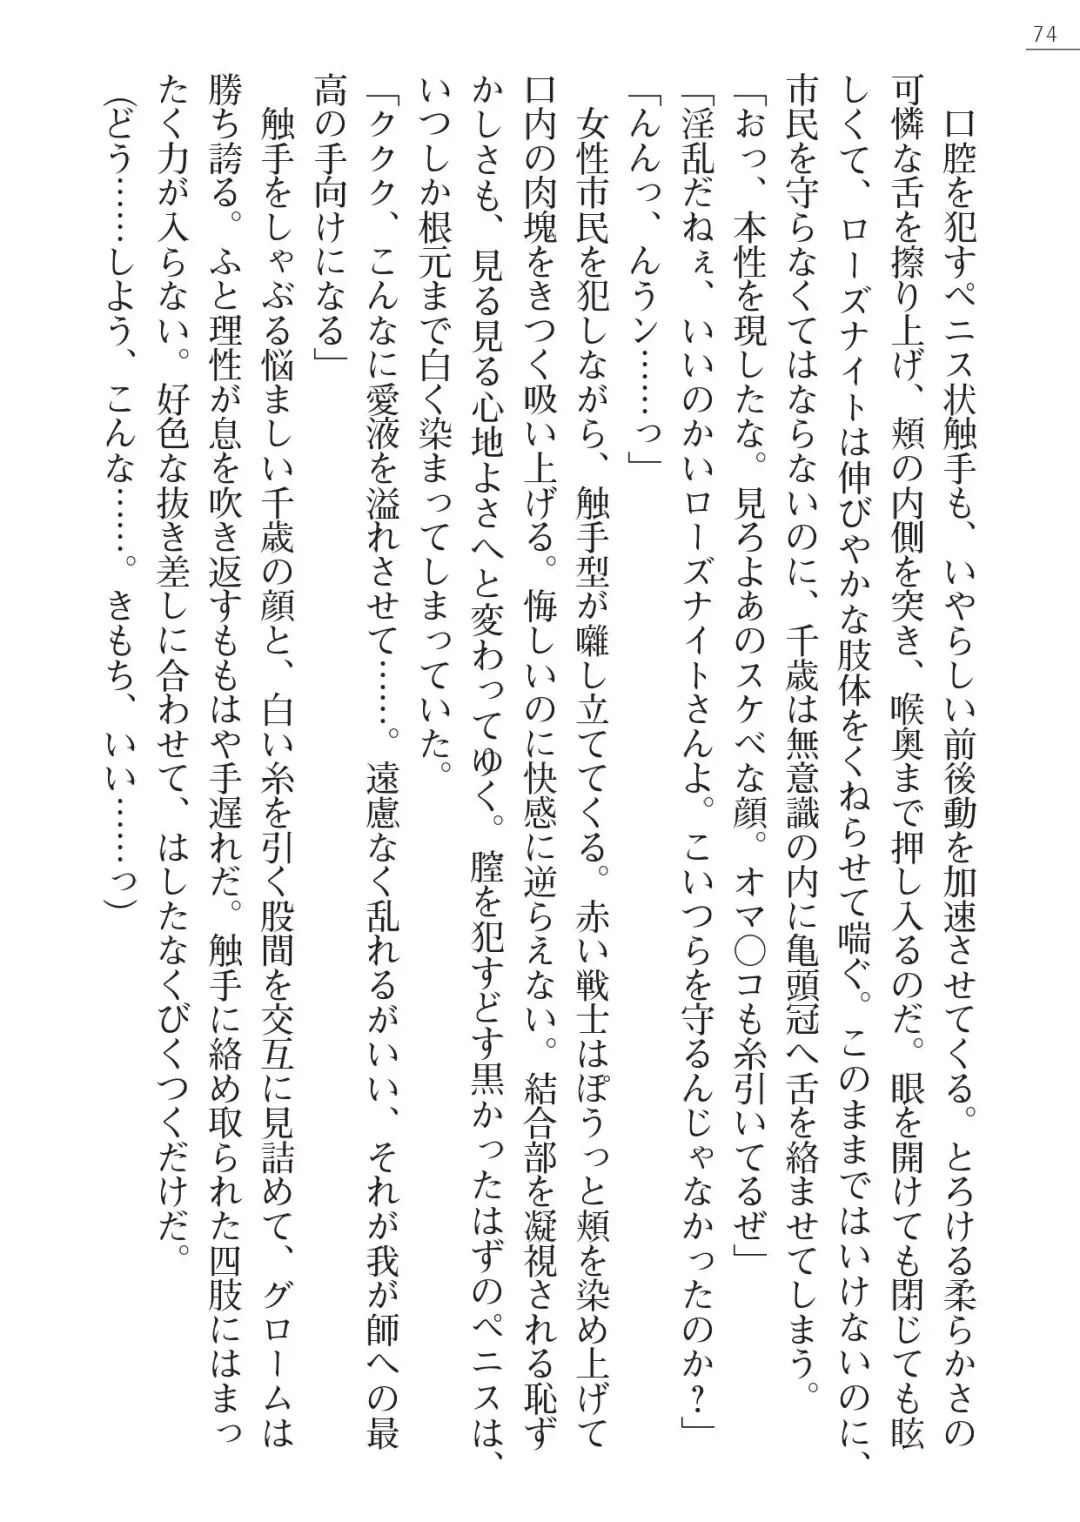 74
　口腔を犯すペニス状触手も、いやらしい前後動を加速させてくる。とろける柔らかさの
可憐な舌を擦り上げ、頬の内側を突き、喉奥まで押し入るのだ。眼を開けても閉じても眩
しくて、ローズナイトは伸びやかな肢体をくねらせて喘ぐ。このままではいけないのに、
市民を守らなくてはならないのに、千歳は無意識の内に亀頭冠へ舌を絡ませてしまう。
「おっ、本性を現したな。見ろよあのスケベな顔。オマ〇コも糸引いてるぜ」
「淫乱だねぇ、いいのかいローズナイトさんよ。こいつらを守るんじゃなかったのか？」
「んんっ、んうン……っ」
　女性市民を犯しながら、触手型が囃し立ててくる。赤い戦士はぽうっと頬を染め上げて
口内の肉塊をきつく吸い上げる。悔しいのに快感に逆らえない。結合部を凝視される恥ず
かしさも、見る見る心地よさへと変わってゆく。膣を犯すどす黒かったはずのペニスは、
いつしか根元まで白く染まってしまっていた。
「ククク、こんなに愛液を溢れさせて……。遠慮なく乱れるがいい、それが我が師への最
高の手向けになる」
　触手をしゃぶる悩ましい千歳の顔と、白い糸を引く股間を交互に見詰めて、グロームは
勝ち誇る。ふと理性が息を吹き返すももはや手遅れだ。触手に絡め取られた四肢にはまっ
たく力が入らない。好色な抜き差しに合わせて、はしたなくびくつくだけだ。
（どう……しよう、こんな……。きもち、いい……っ）